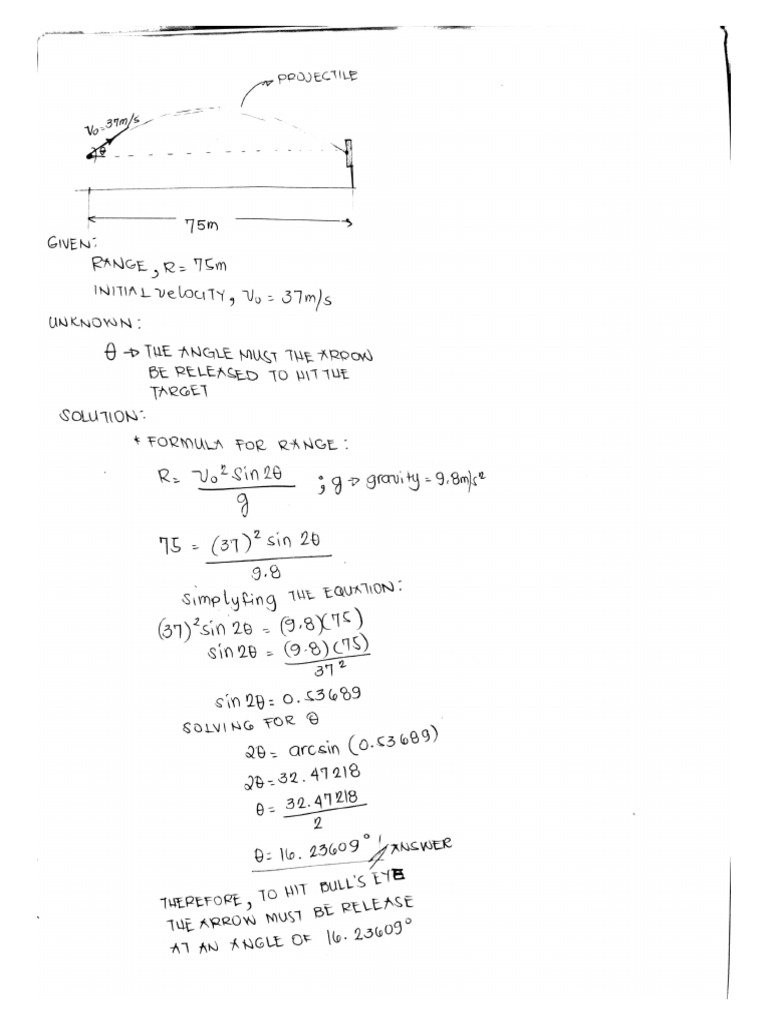 PROJECTILE
V₀=37m/s
θ
75m
GIVEN:
RANGE, R= 75m
INITIAL VELOCITY, V₀ = 37m/s
UNKNOWN:
θ → THE ANGLE MUST THE ARROW
BE RELEASED TO HIT THE
TARGET
SOLUTION:
* FORMULA FOR RANGE:
R= V₀² sin 2θ / g ; g → gravity = 9.8m/s²
75 = (37)² sin 2θ / 9.8
simplyfing THE EQUATION:
(37)² sin 2θ = (9.8)(75)
sin 2θ = (9.8)(75) / 37²
sin 2θ = 0.53689
SOLVING FOR θ
2θ= arcsin (0.53689)
2θ=32.47218
θ= 32.47218 / 2
θ= 16.23609° ANSWER
THEREFORE, TO HIT BULL'S EYE
THE ARROW MUST BE RELEASE
AT AN ANGLE OF 16.23609°